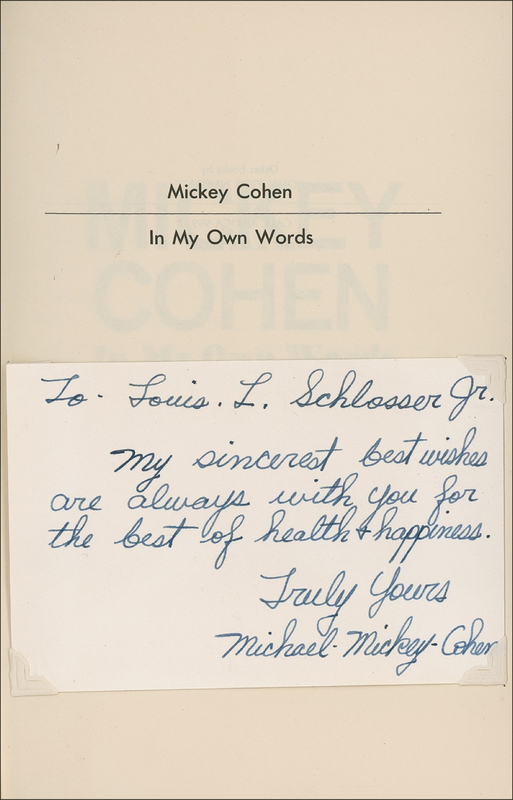 Mickey Cohen
In My Own Words
MICKEY
COHEN
In My Own Words
To - Louis. L. Schlosser Jr.
My sincerest best wishes
are always with you for
the best of health & happiness.
Truly Yours
Michael - Mickey - Cohen